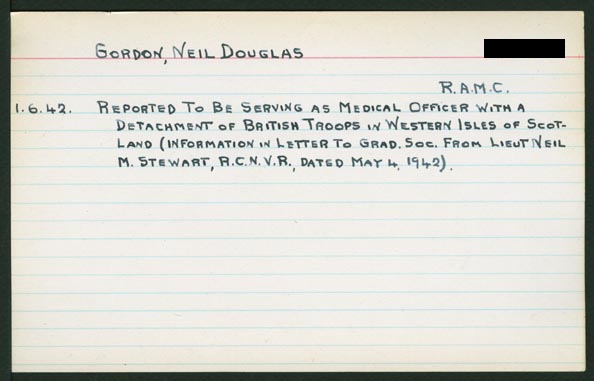 GORDON, NEIL DOUGLAS
R.A.M.C.
1.6.42. REPORTED TO BE SERVING AS MEDICAL OFFICER WITH A
DETACHMENT OF BRITISH TROOPS IN WESTERN ISLES OF SCOT-
LAND (INFORMATION IN LETTER TO GRAD. SOC. FROM LIEUT NEIL
M. STEWART, R.C.N.V.R., DATED MAY 4, 1942).